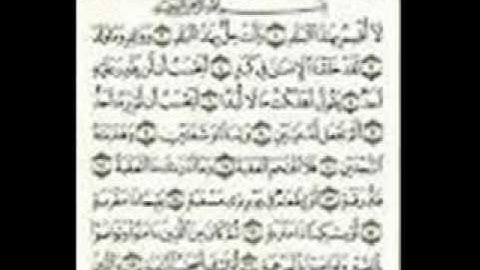 بسم الله الرحمن الرحيم
لَا أُقْسِمُ بِهَٰذَا الْبَلَدِ ۝ وَأَنتَ حِلٌّ بِهَٰذَا الْبَلَدِ ۝ وَوَالِدٍ وَمَا وَلَدَ
۝ لَقَدْ خَلَقْنَا الْإِنسَانَ فِي كَبَدٍ ۝ أَيَحْسَبُ أَن لَّن يَقْدِرَ عَلَيْهِ
أَحَدٌ ۝ يَقُولُ أَهْلَكْتُ مَالًا لُّبَدًا ۝ أَيَحْسَبُ أَن لَّمْ يَرَهُ أَحَدٌ
۝ أَلَمْ نَجْعَل لَّهُ عَيْنَيْنِ ۝ وَلِسَانًا وَشَفَتَيْنِ ۝ وَهَدَيْنَاهُ
النَّجْدَيْنِ ۝ فَلَا اقْتَحَمَ الْعَقَبَةَ ۝ وَمَا أَدْرَاكَ مَا الْعَقَبَةُ ۝
فَكُّ رَقَبَةٍ ۝ أَوْ إِطْعَامٌ فِي يَوْمٍ ذِي مَسْغَبَةٍ ۝ يَتِيمًا ذَا مَقْرَبَةٍ
۝ أَوْ مِسْكِينًا ذَا مَتْرَبَةٍ ۝ ثُمَّ كَانَ مِنَ الَّذِينَ آمَنُوا وَتَوَاصَوْا